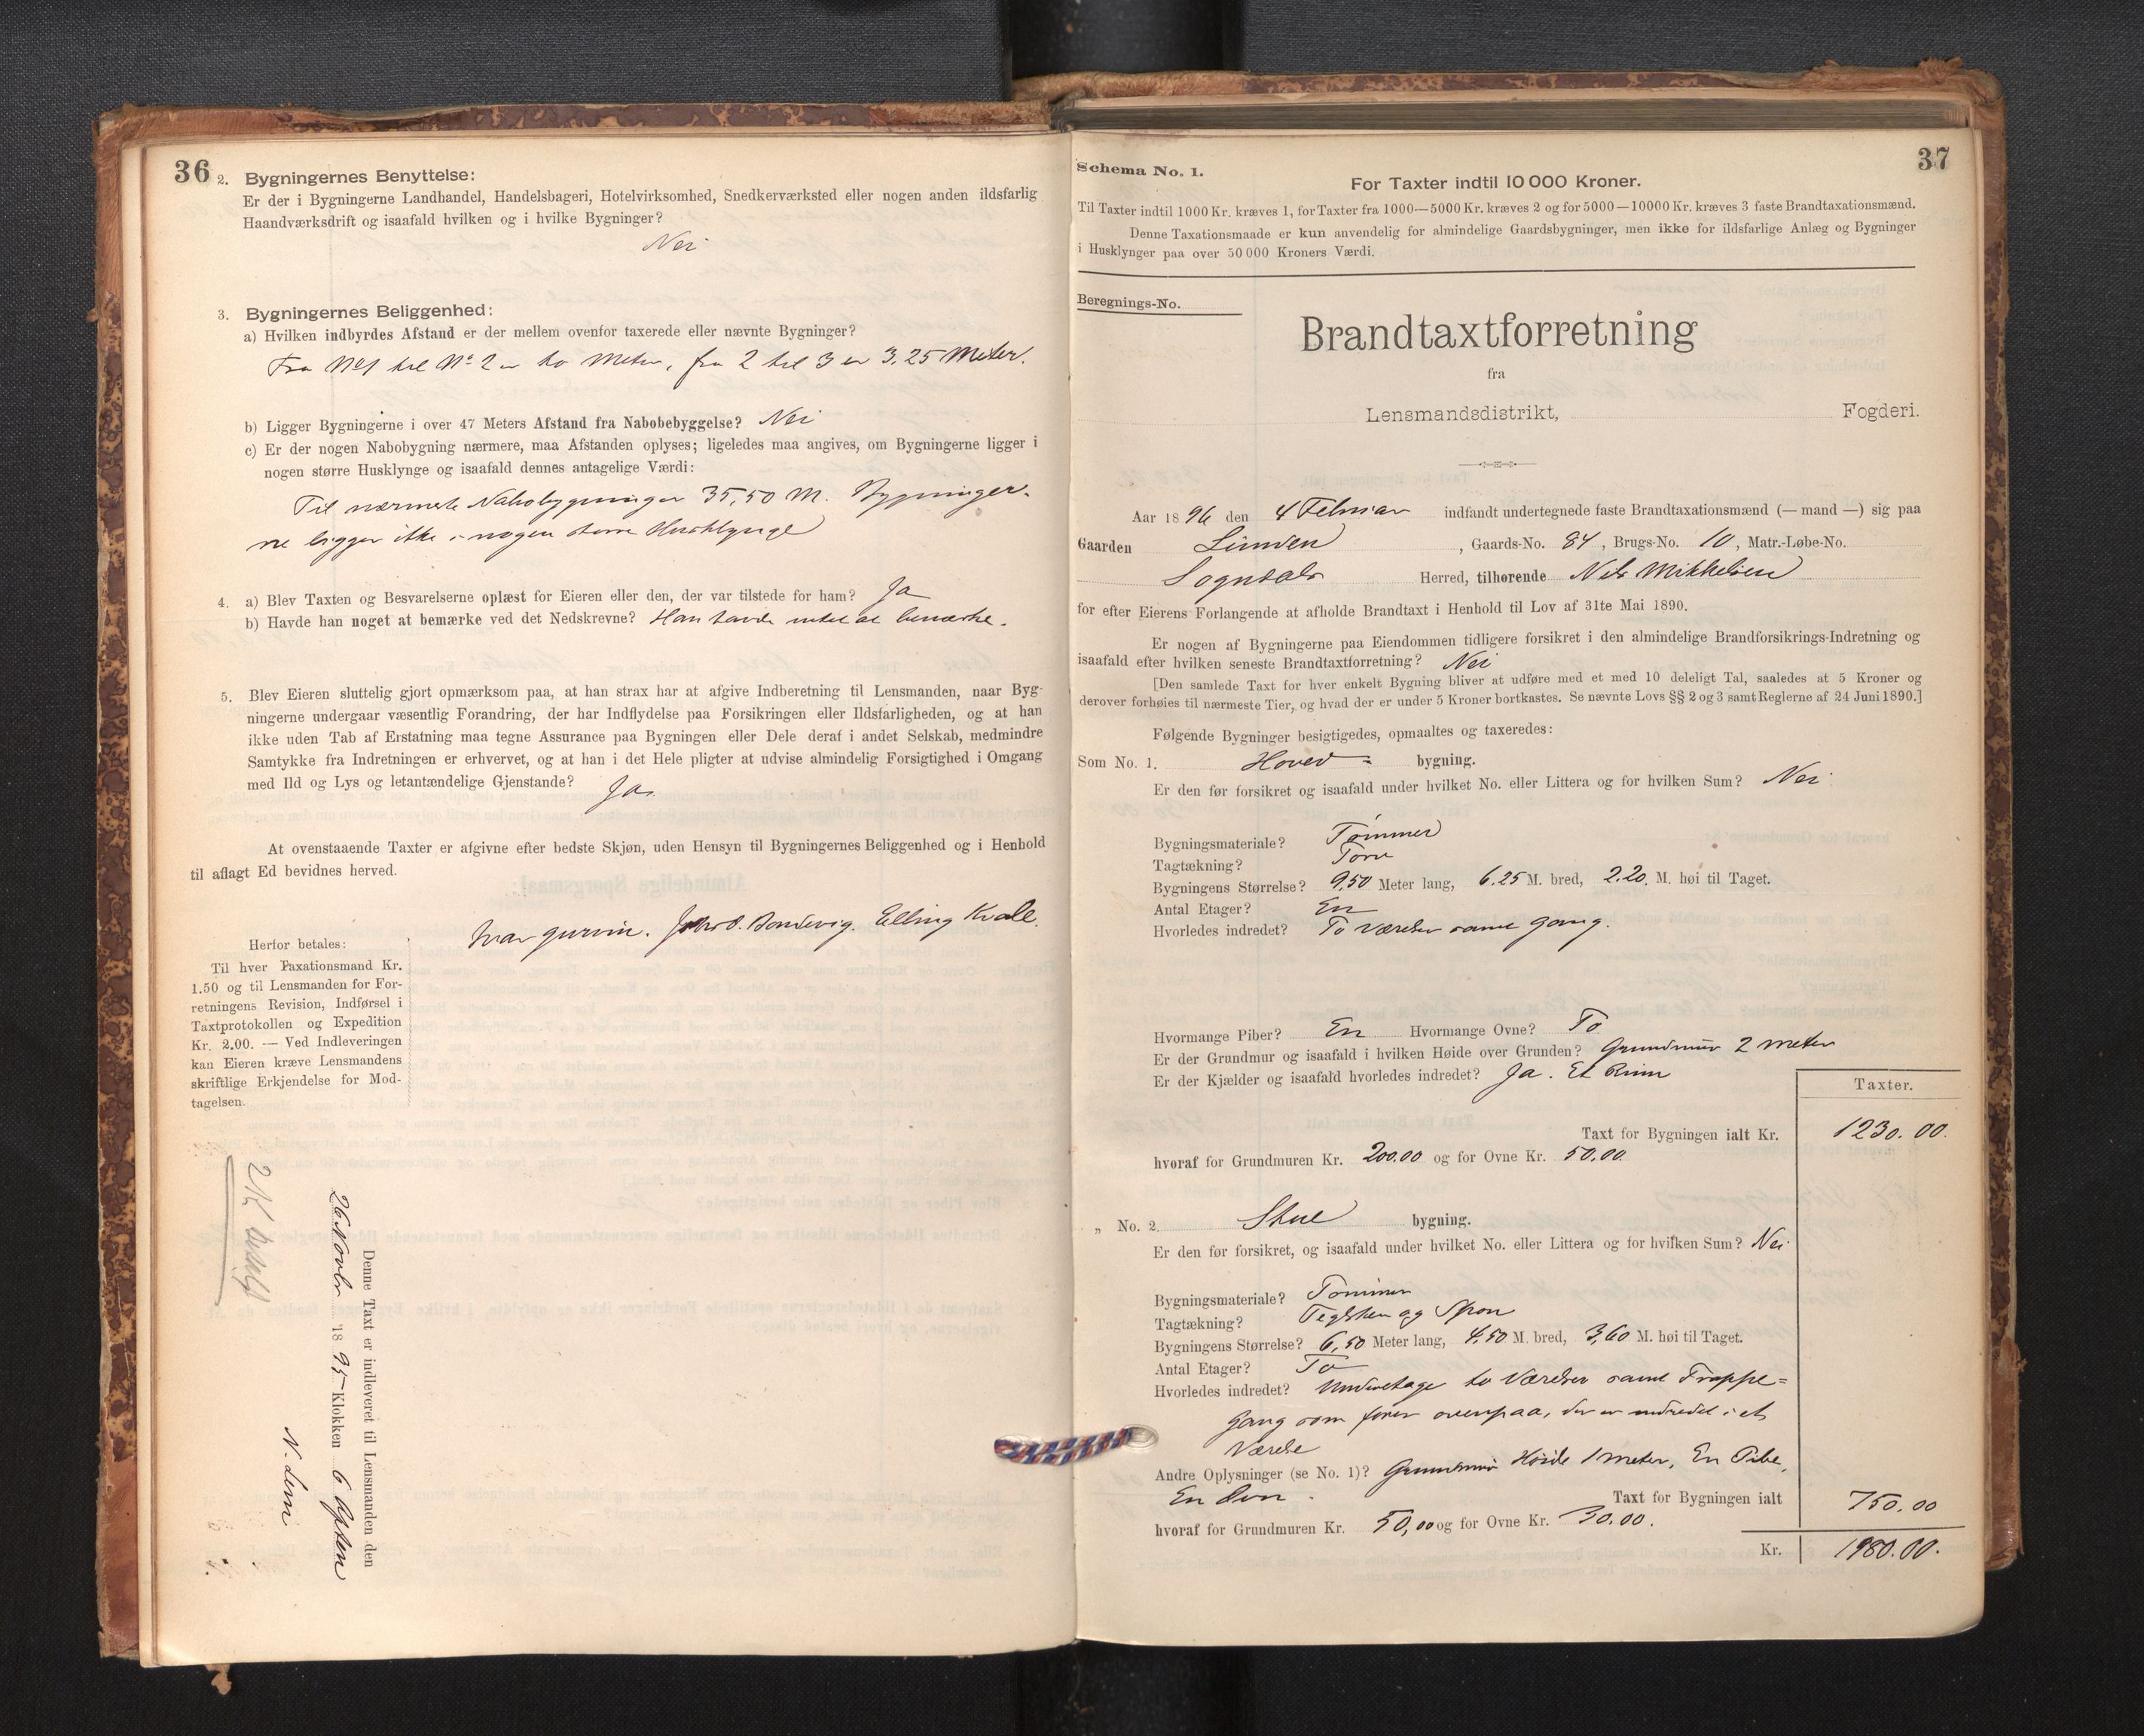 36
2. Bygningernes Benyttelse:
Er der i Bygningerne Landhandel, Handelsbageri, Hotelvirksomhed, Snedkerværksted eller nogen anden ildsfarlig
Haandværksdrift og isaafald hvilken og i hvilke Bygninger?
Nei
3. Bygningernes Beliggenhed:
a) Hvilken indbyrdes Afstand er der mellem ovenfor taxerede eller nævnte Bygninger?
Fra No 1 til No 2 er to Meter, fra 2 til 3 er 3,25 Meter.
b) Ligger Bygningerne i over 47 Meters Afstand fra Nabobebyggelse? Nei
c) Er der nogen Nabobygning nærmere, maa Afstanden oplyses; ligeledes maa angives, om Bygningerne ligger i
nogen større Husklynge og isaafald dennes antagelige Værdi:
Til nærmeste Nabobygninger 35,50 M. Bygninger-
ne ligger ikke i nogen større Husklynge
4. a) Blev Taxten og Besvarelserne oplæst for Eieren eller den, der var tilstede for ham? Ja
b) Havde han noget at bemærke ved det Nedskrevne? Han havde intet at bemærke.
5. Blev Eieren sluttelig gjort opmærksom paa, at han strax har at afgive Indberetning til Lensmanden, naar Byg-
ningerne undergaar væsentlig Forandring, der har Indflydelse paa Forsikringen eller Ildsfarligheden, og at han
ikke uden Tab af Erstatning maa tegne Assurance paa Bygningen eller Dele deraf i andet Selskab, medmindre
Samtykke fra Indretningen er erhvervet, og at han i det Hele pligter at udvise almindelig Forsigtighed i Omgang
med Ild og Lys og letantændelige Gjenstande? Ja
At ovenstaaende Taxter er afgivne efter bedste Skjøn, uden Hensyn til Bygningernes Beliggenhed og i Henhold
til aflagt Ed bevidnes herved.
Elling Kvale
Herfor betales:
Til hver Taxationsmand Kr.
1.50 og til Lensmanden for For-
retningens Revision, Indførsel i
Taxtprotokollen og Expedition
Kr. 2.00. — Ved Indleveringen
kan Eieren kræve Lensmandens
skriftlige Erkjendelse for Mod-
tagelsen.
Denne Taxt er indleveret til Lensmanden den
26 Novbr 1895 Klokken 6 Aften
N. Lem
37
Schema No. 1.
For Taxter indtil 10 000 Kroner.
Til Taxter indtil 1000 Kr. kræves 1, for Taxter fra 1000—5000 Kr. kræves 2 og for 5000—10000 Kr. kræves 3 faste Brandtaxationsmænd.
Denne Taxationsmaade er kun anvendelig for almindelige Gaardsbygninger, men ikke for ildsfarlige Anlæg og Bygninger
i Husklynger paa over 50 000 Kroners Værdi.
Beregnings-No.
Brandtaxtforretning
fra
Lensmandsdistrikt, Fogderi.
Aar 1896 den 4 Februar indfandt undertegnede faste Brandtaxationsmænd (— mand —) sig paa
Gaarden Linden, Gaards-No. 84, Brugs-No. 10, Matr.-Løbe-No.
Sogndals Herred, tilhørende Nils Mikkelsen
for efter Eierens Forlangende at afholde Brandtaxt i Henhold til Lov af 31te Mai 1890.
Er nogen af Bygningerne paa Eiendommen tidligere forsikret i den almindelige Brandforsikrings-Indretning og
isaafald efter hvilken seneste Brandtaxtforretning? Nei
[Den samlede Taxt for hver enkelt Bygning bliver at udføre med et med 10 deleligt Tal, saaledes at 5 Kroner og
derover forhøies til nærmeste Tier, og hvad der er under 5 Kroner bortkastes. Se nævnte Lovs §§ 2 og 3 samt Reglerne af 24 Juni 1890.]
Følgende Bygninger besigtigedes, opmaaltes og taxeredes:
Som No. 1. Hoved= bygning.
Er den før forsikret og isaafald under hvilket No. eller Littera og for hvilken Sum? Nei
Bygningsmateriale? Tømmer
Tagtækning? Torv
Bygningens Størrelse? 9,50 Meter lang, 6.25 M. bred, 2.20. M. høi til Taget.
Antal Etager? En
Hvorledes indredet? To Værelser samt Gang.
Hvormange Piber? En Hvormange Ovne? To
Er der Grundmur og isaafald i hvilken Høide over Grunden? Grundmur 2 meter
Er der Kjælder og isaafald hvorledes indredet? Ja. Et Rum
Taxter.
Taxt for Bygningen ialt Kr. 1230.00.
hvoraf for Grundmuren Kr. 200.00 og for Ovne Kr. 50.00
„ No. 2. Stue bygning.
Er den før forsikret, og isaafald under hvilket No. eller Littera og for hvilken Sum? Nei
Bygningsmateriale? Tømmer
Tagtækning? Teglsten og Spon
Bygningens Størrelse? 6,50 Meter lang, 4,50 M. bred, 3,60 M. høi til Taget.
Antal Etager? To
Hvorledes indredet? Underetage to Værelser samt Trappe=
gang som fører ovenpaa, der er indredet i et
Værelse
Andre Oplysninger (se No. 1)? Grundmur Høide 1 meter, En Pibe,
En Ovn. Taxt for Bygningen ialt 750.00
hvoraf for Grundmuren Kr. 50,00 og for Ovne Kr. 30.00.
Kr. 1980.00.